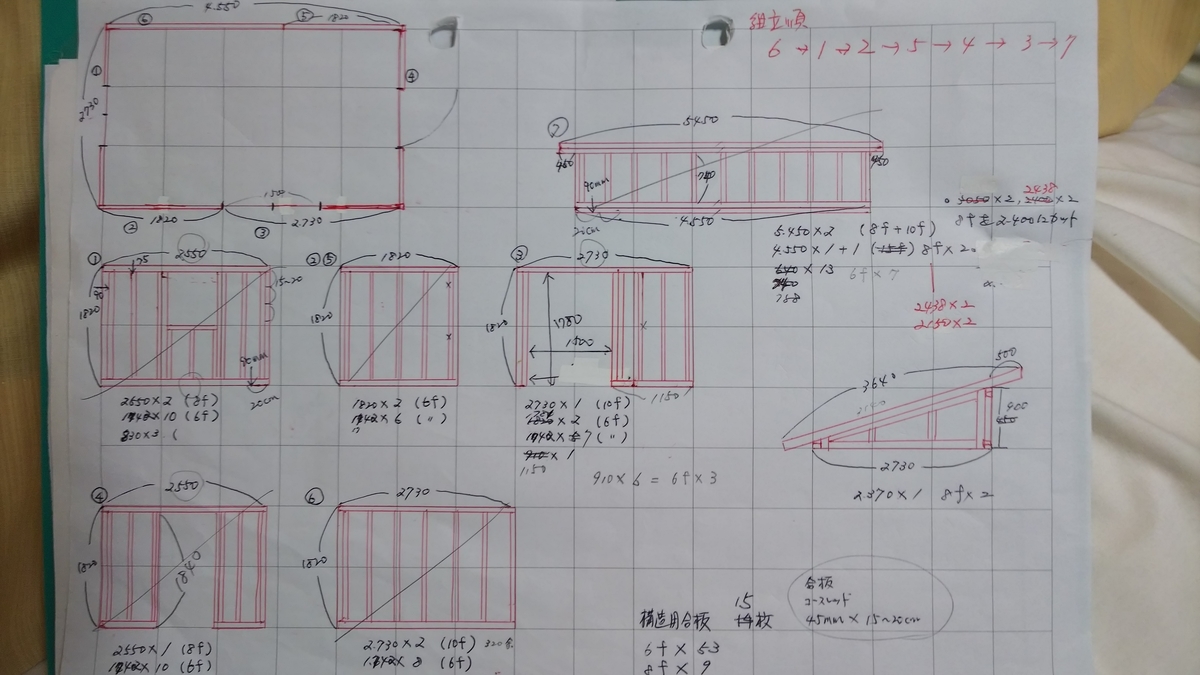 4.550
⑥
⑤ 1820
組立順
6→1→2→5→4→3→7
①
④
2730
⑦
5450
450
450
90mm
740
1500
② 1820
③ 2.730
4.550
20cm
5.450×2 (8f+10f)
4.550×1+1 8f×2
×13 6f×7
788
2438
×2, ×2
8fを2.400にカット
2438×2
2150×2
① 2550
175
15~20
90
1820
90mm
20cm
2550×2 (8f)
×10 (6f)
830×3 (
②⑤ 1820
1820
1820×2 (6f)
×6 (〃)
③ 2730
1820
1780
1500
1150
2730×1 (10f)
×2 (6f)
×7 (〃)
×1
1150
910×6=6f×3
500
3640
900
2730
2.370×1 8f×2
④ 2550
1820
1840
2550×1 (8f)
×10 (6f)
⑥ 2730
1820
2.730×2 (10f)
×8 (6f)
構造用合板 15枚
6f×53
8f×9
合板
コースレッド
45mm×15~20cm